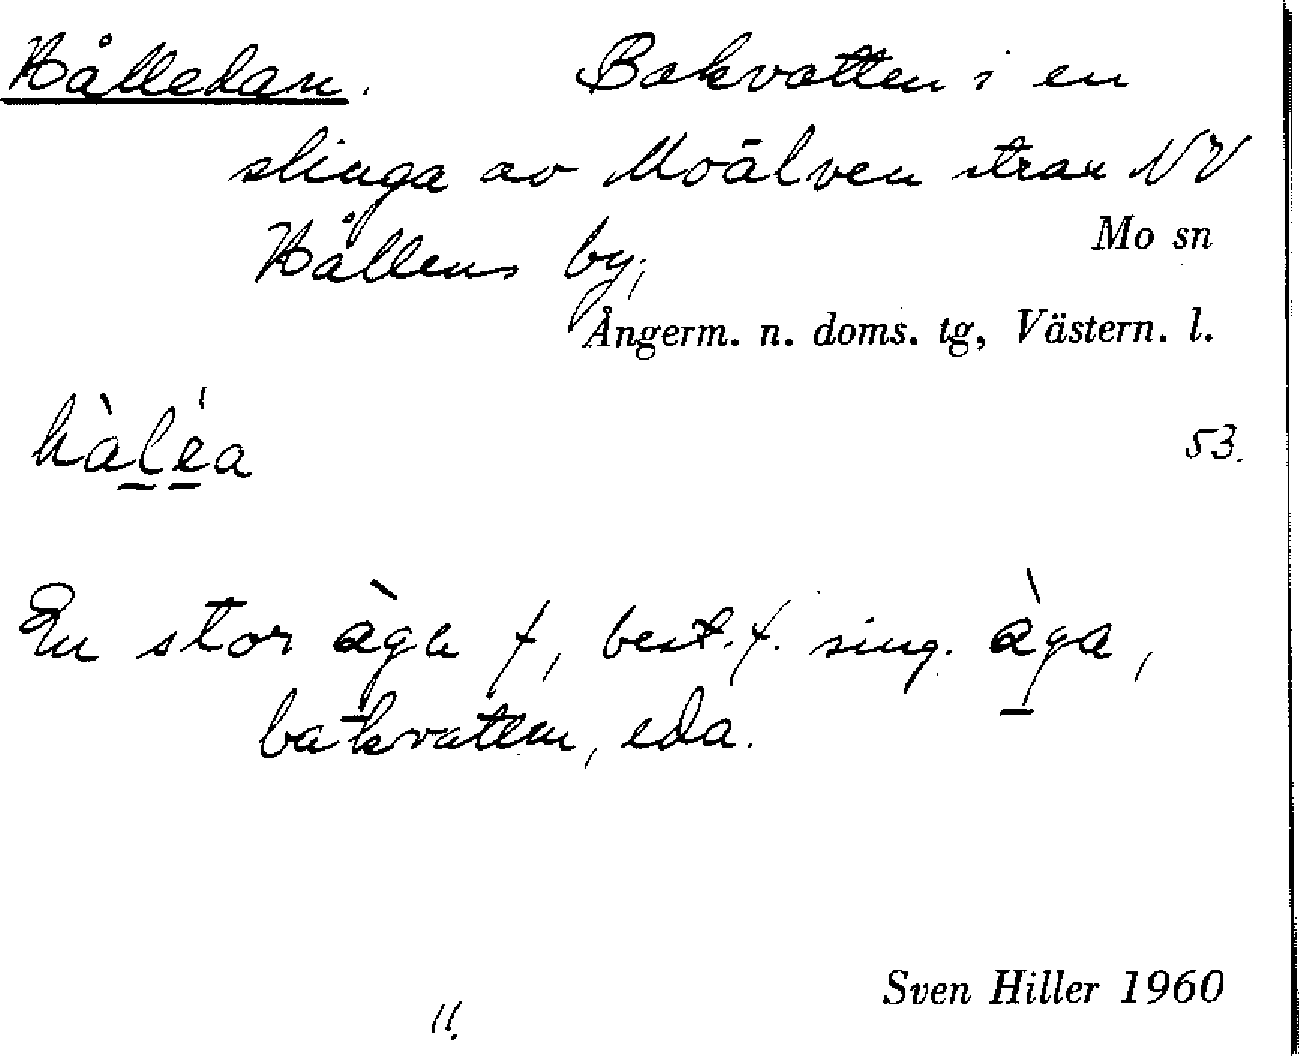 Hålledan. Bakvatten i en
slinga av Moälven strax NV
Hållens by,
Mo sn
Ångerm. n. doms. tg, Västern. l.
53.
En stor àga f, best. f. sing. àga,
bakvatten, eda.
Sven Hiller 1960
11.